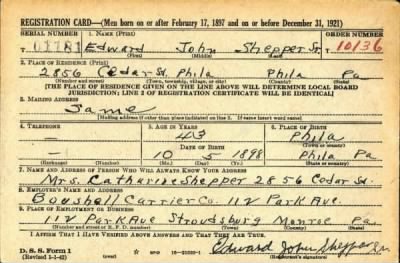 REGISTRATION CARD—(Men born on or after February 17, 1897 and on or before December 31, 1921)
SERIAL NUMBER 1. NAME (Print) ORDER NUMBER
T Edward John Shepper Sr. T 10136
(First) (Middle) (Last)
2. PLACE OF RESIDENCE (Print)
2856 Cedar St. Phila Phila Pa
(Number and street) (Town, township, village, or city) (County) (State)
[THE PLACE OF RESIDENCE GIVEN ON THE LINE ABOVE WILL DETERMINE LOCAL BOARD
JURISDICTION; LINE 2 OF REGISTRATION CERTIFICATE WILL BE IDENTICAL]
3. MAILING ADDRESS
Same
[Mailing address if other than place indicated on line 2. If same insert word same]
4. TELEPHONE 5. AGE IN YEARS 6. PLACE OF BIRTH
— 43 Phila
DATE OF BIRTH (Town or county)
— 10 5 1898 Phila Pa
(Exchange) (Number) (Mo.) (Day) (Yr.) (State or country)
7. NAME AND ADDRESS OF PERSON WHO WILL ALWAYS KNOW YOUR ADDRESS
Mrs. Catharine Shepper 2856 Cedar St.
8. EMPLOYER'S NAME AND ADDRESS
Boushell Carrier Co. 112 Park Ave.
9. PLACE OF EMPLOYMENT OR BUSINESS
112 Park Ave Stroudsburg Monroe Pa
(Number and street or R. F. D. number) (Town) (County) (State)
I AFFIRM THAT I HAVE VERIFIED ABOVE ANSWERS AND THAT THEY ARE TRUE.
D. S. S. Form 1
(Revised 4-1-42) (over)
Edward John Shepper Sr.
(Registrant's signature)